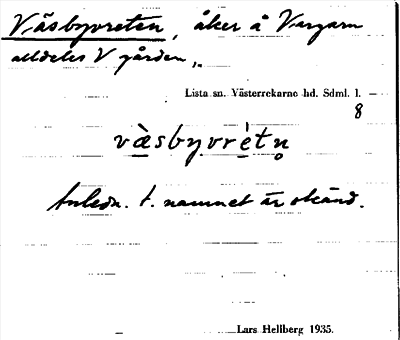 Väsbyvreten, åker å Vargarn
alldeles V gården.
Lista sn. Västerrekarne hd. Sdml. l.
8
vä̀sbyvrètn̥
Anledn. t. namnet är okänd.
Lars Hellberg 1935.